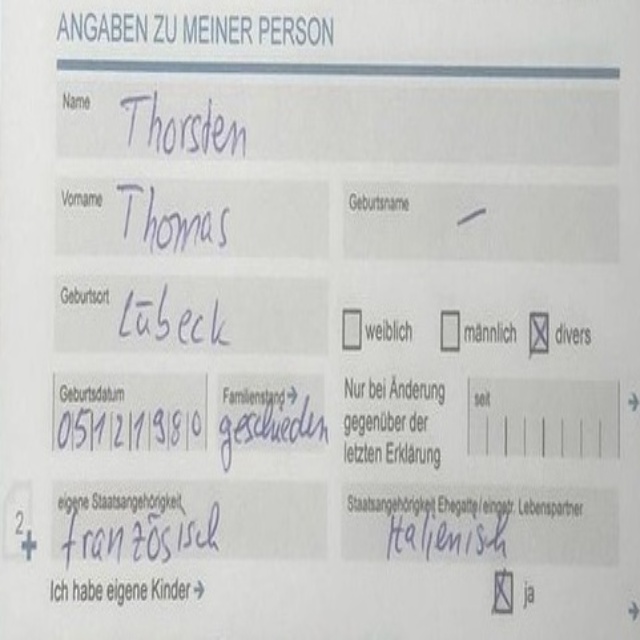 ANGABEN ZU MEINER PERSON
Name Thorsten
Vorname Thomas
Geburtsname –
Geburtsort Lübeck
weiblich männlich divers
Geburtsdatum 05121980
Familienstand geschieden
Nur bei Änderung
gegenüber der
letzten Erklärung
seit
eigene Staatsangehörigkeit französisch
Staatsangehörigkeit Ehegatte/eingetr. Lebenspartner Italienisch
2
Ich habe eigene Kinder
ja